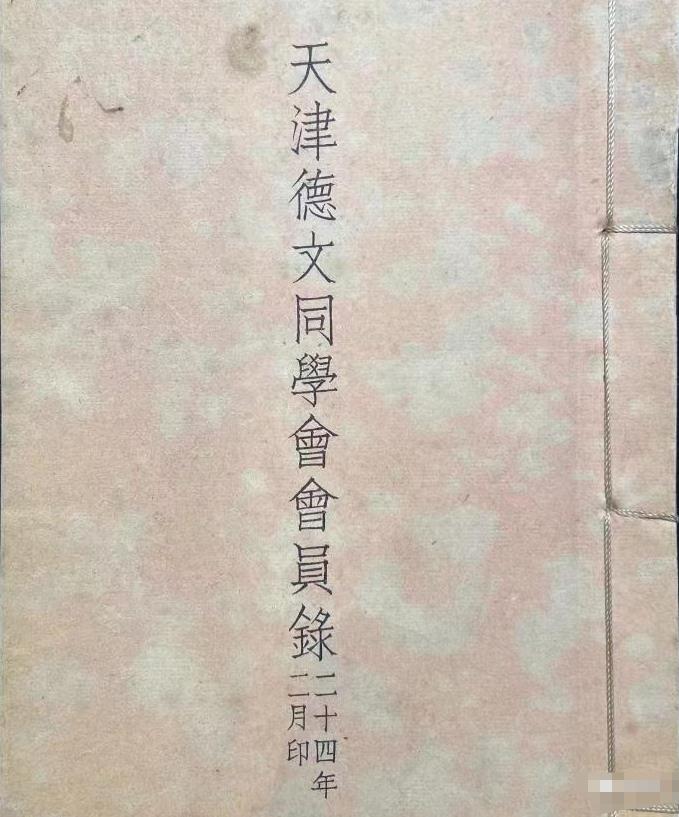 天津德文同學會會員錄
二十四年
二月印